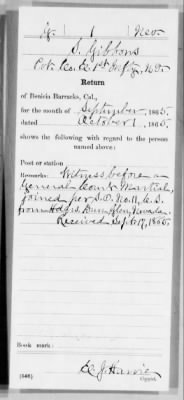 G | 1 | Nev.
J. Gibbons
Pvt. Co. C. 1st Inf'y, N.V.
Return
of Benicia Barracks, Cal.,
for the month of September, 1865.
dated October 1, 1865.
shows the following with regard to the person
named above:
Post or station
Remarks: Witness before a
General Court Martial,
joined per S.O. No. 11, C.S.
from Hdqrs., Nevada.
Received Sept. 17, 1865.
Book mark:
Copyist.
(546)